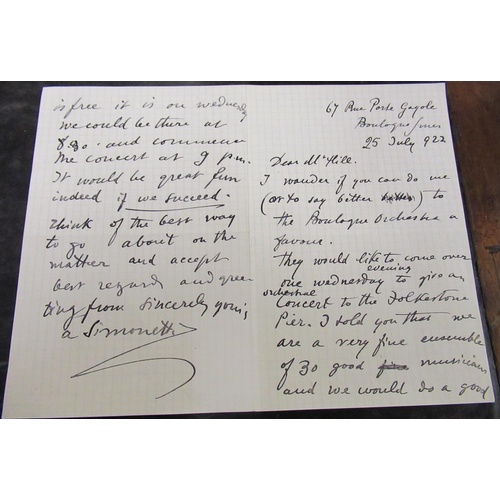 67 Rue Porte Gayole
Boulogne s/mer
25 July 922
Dear Mr Hill.
I wander if you can do me
(or to say bitter) to
the Boulogne Orchestra a
favour.
They would like to come over
one wednesday evening to give an
orchestral
Concert to the Folkestone
Pier. I told you that we
are a very fine ensemble
of 30 good musicians
and we would do a good
is free it is on wednesday
we could be there at
8.30. and commence
the concert at 9 p.m.
It would be great fun
indeed if we succeed.
Think of the best way
to go about on the
matter and accept
best regards and gree-
ting from sincerely yours
a Simonetti